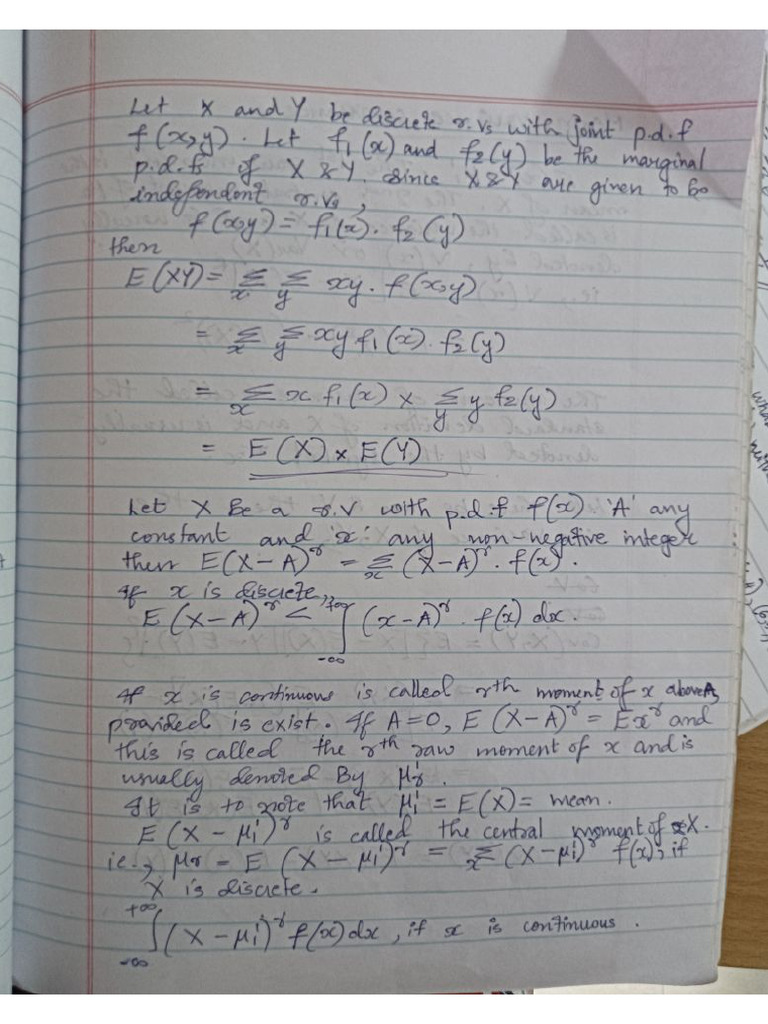 Let X and Y be discrete r.vs with joint p.d.f
f(x,y). Let f₁(x) and f₂(y) be the marginal
p.d.fs of X & Y, since X & Y are given to be
independent r.vs,
f(x,y) = f₁(x). f₂(y)
then
E(XY) = Σₓ Σᵧ xy. f(x,y)
= Σₓ Σᵧ xy f₁(x). f₂(y)
= Σₓ x f₁(x) × Σᵧ y f₂(y)
= E(X) × E(Y)
Let X Be a r.v with p.d.f f(x) 'A' any
constant and 'x' any non-negative integer
then E(X-A)ʳ = Σₓ (X-A)ʳ. f(x).
If x is discrete,
E(X-A)ʳ < ∫₋∞⁺∞ (x-A)ʳ. f(x) dx.
If x is continuous is called rth moment of x above A,
provided is exist. If A=0, E(X-A)ʳ = Exʳ and
this is called the rth raw moment of x and is
usually denoted By μr'.
It is to note that μ₁' = E(X) = mean.
E(X-μ₁')ʳ is called the central moment of X.
ie., μr = E(X-μ₁')ʳ = Σₓ (X-μ₁')ʳ f(x), if
X is discrete.
∫₋∞⁺∞ (X-μ₁')ʳ f(x) dx, if x is continuous.